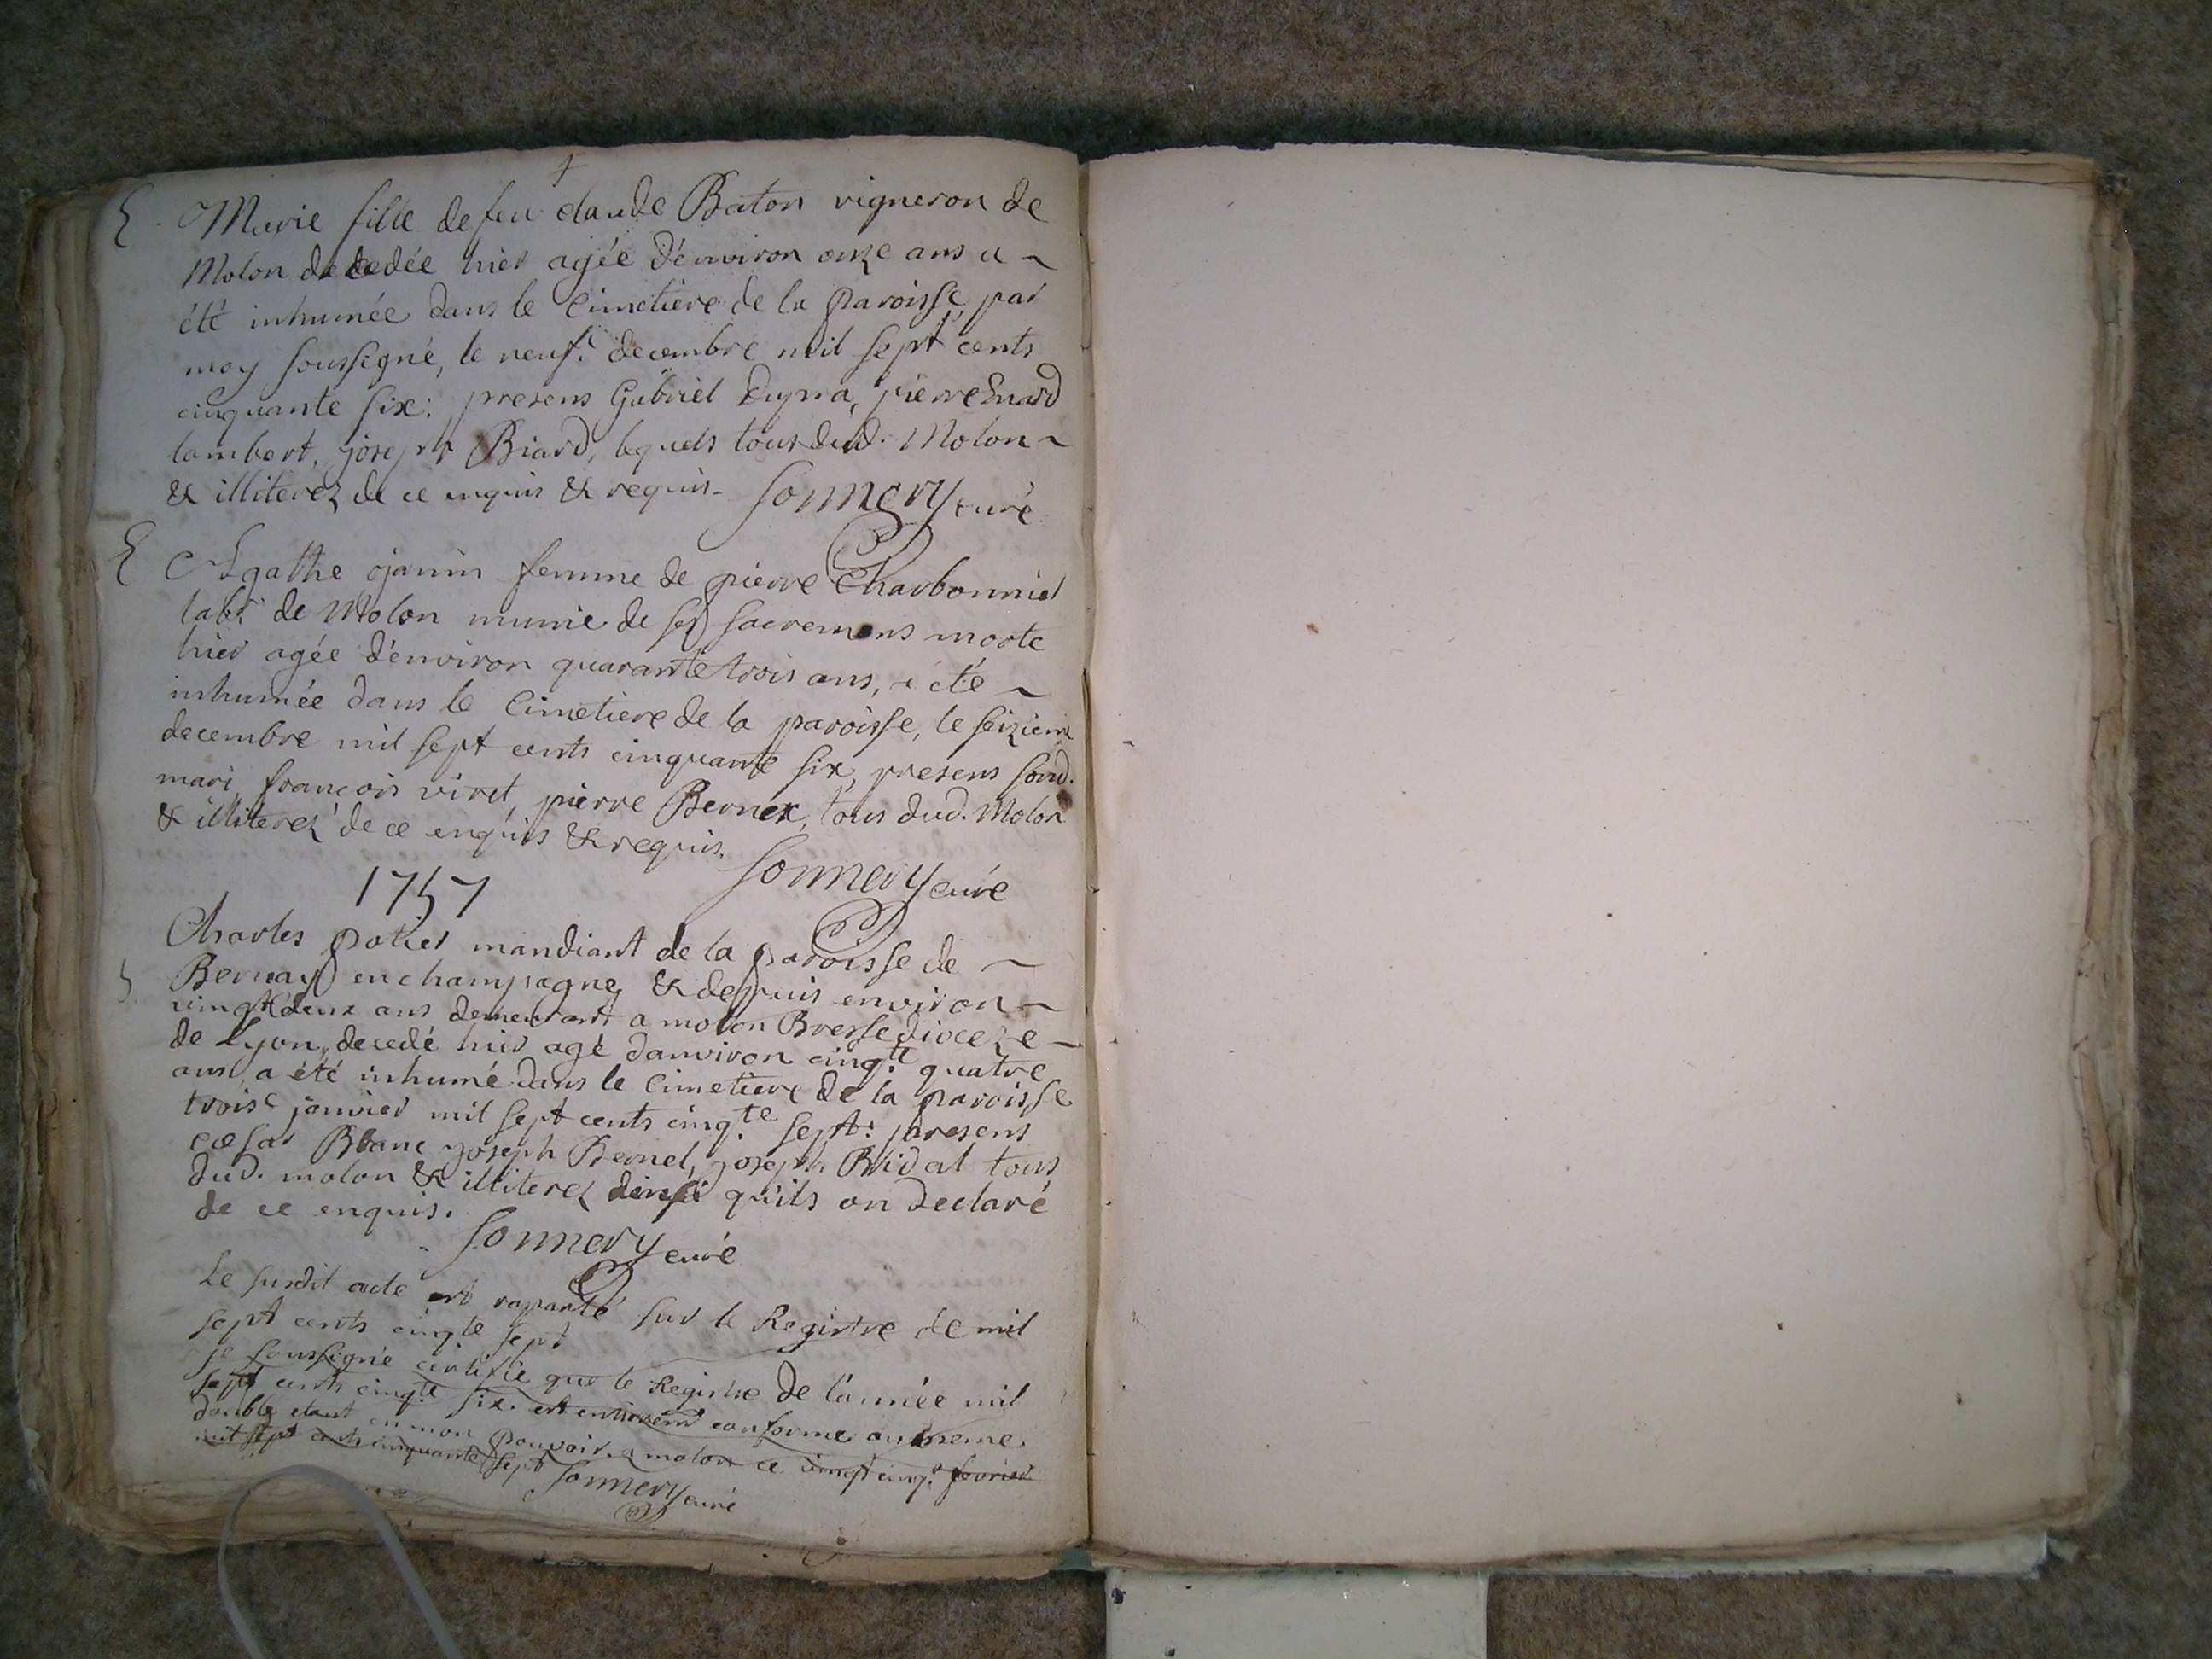 Marie fille de feu claude Baton vigneron de
Molon decedée hier agée d'environ onze ans a
été inhumée dans le Cimetiere de la paroisse par
moy soussigné, le neuf.e decembre mil sept cents
cinquante six: presens Gabriel Dupra, pierre
lambert, joseph Biard, lequels tous dud. Molon
& illiterez de ce enquis & requis. Sonnery curé
Agathe janin femme de pierre Charbonnier
labr. de Molon munie de ses sacremens morte
hier agée d'environ quarante trois ans, a été
inhumée dans le Cimetiere de la paroisse, le seizieme
decembre mil sept cents cinquante six, presens sond.
mari, françois viret, pierre Bernex, tous dud. Molon
& illiterez de ce enquis & requis.
Sonnery curé
1757
Charles potier mandiant de la paroisse de
Bernay en champagne & depuis environ
vingt deux ans demeurant a molon Bresse dioceze
de Lyon, decedé hier agé danviron cinq.te quatre
ans a été inhumé dans le Cimetiere de la paroisse
trois.e janvier mil sept cents cinq.te sept: presens
cæsar Blanc joseph Bernel, joseph Bidal tous
dud. molon & illiterez ainsi qu'ils on declaré
de ce enquis.
Sonnery curé
Le susdit acte est raporté sur le Registre de mil
sept cents cinq.te sept
je soussigné certifie que le Registre de l'année mil
sept cents cinq.te six est entierem.t conforme au meme
double etant en mon pouvoir a molon ce vingt cinq.e fevrier
mil sept cents cinquante sept
Sonnery curé